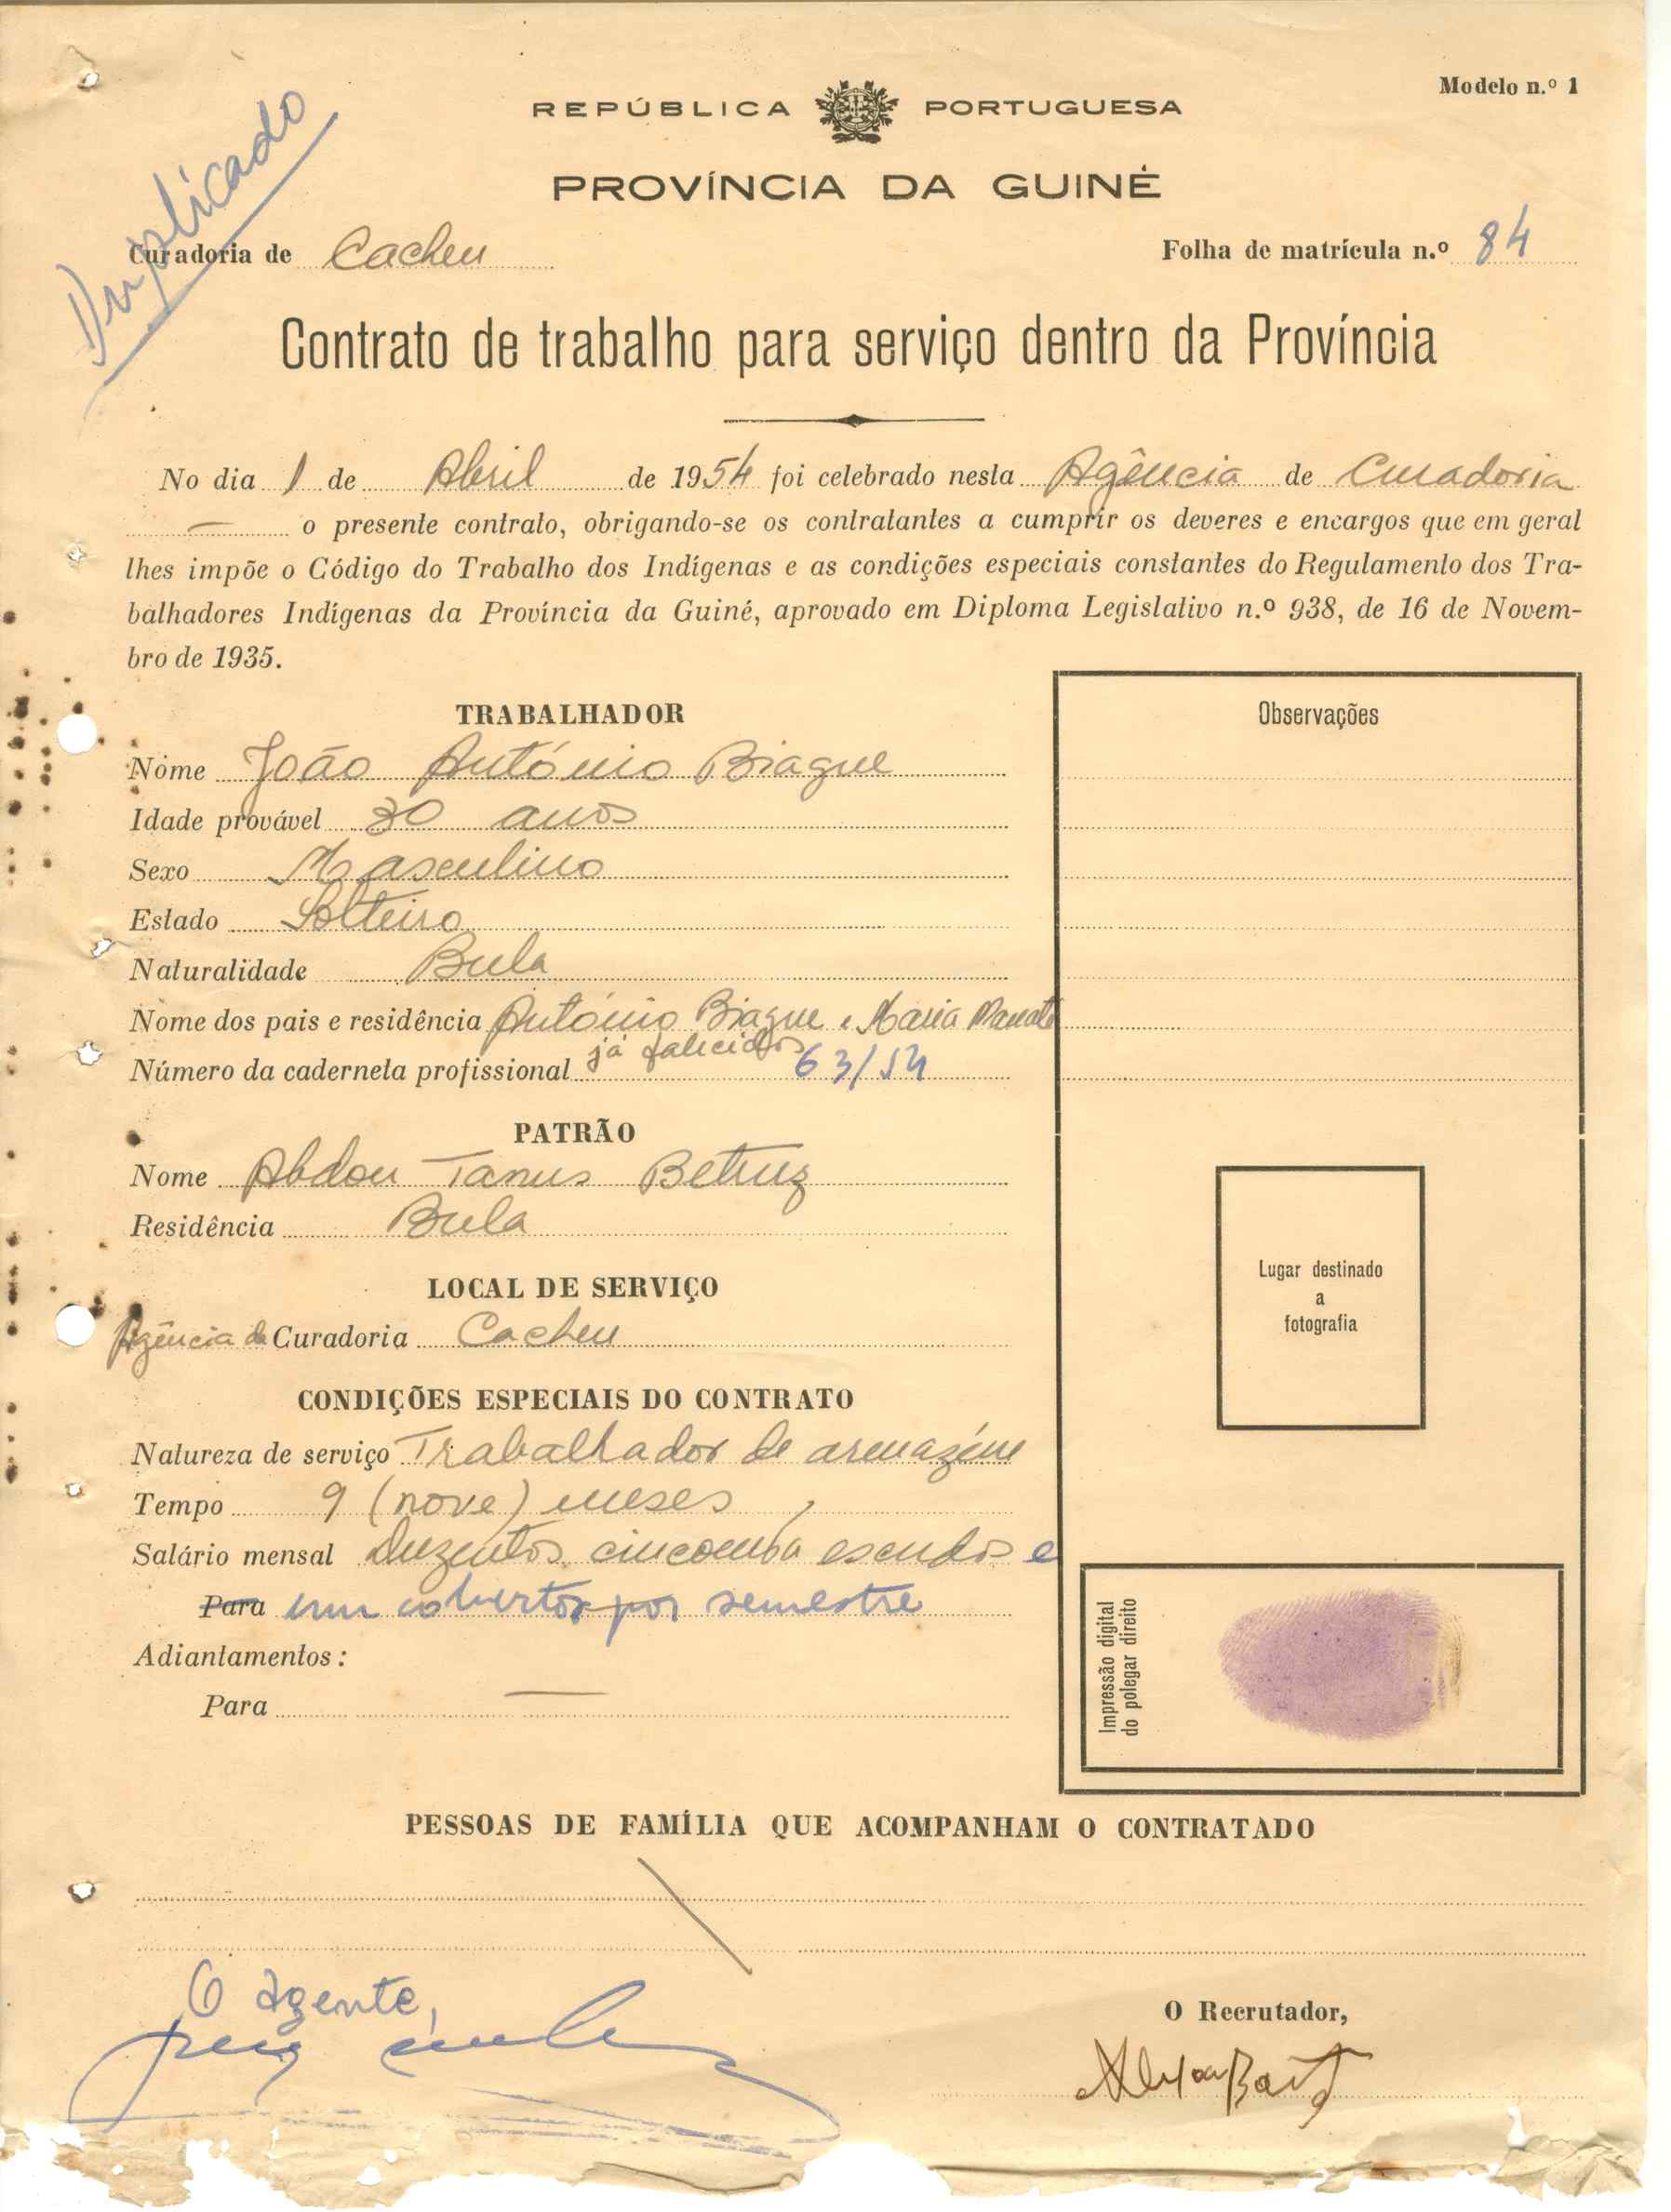 Modelo n.º 1
REPÚBLICA PORTUGUESA
PROVÍNCIA DA GUINÉ
Duplicado
Curadoria de Cacheu Folha de matrícula n.º 84
Contrato de trabalho para serviço dentro da Província
No dia 1 de Abril de 1954 foi celebrado nesta Agência de Curadoria
— o presente contrato, obrigando-se os contratantes a cumprir os deveres e encargos que em geral
lhes impõe o Código do Trabalho dos Indígenas e as condições especiais constantes do Regulamento dos Tra-
balhadores Indígenas da Província da Guiné, aprovado em Diploma Legislativo n.º 938, de 16 de Novem-
bro de 1935.
TRABALHADOR
Observações
Nome João António Biague
Idade provável 30 anos
Sexo Masculino
Estado Solteiro
Naturalidade Bula
Nome dos pais e residência António Biague e Maria
já falecidos
Número da caderneta profissional 63/54
PATRÃO
Nome Abdou Tanus
Residência Bula
Lugar destinado
a
fotografia
LOCAL DE SERVIÇO
Agência da Curadoria Cacheu
CONDIÇÕES ESPECIAIS DO CONTRATO
Natureza de serviço Trabalhador de armazém
Tempo 9 (nove) meses
Salário mensal Duzentos cincoenta escudos e
Para um cobertor por semestre
Adiantamentos:
Para —
Impressão digital
do polegar direito
PESSOAS DE FAMÍLIA QUE ACOMPANHAM O CONTRATADO
O agente,
O Recrutador,